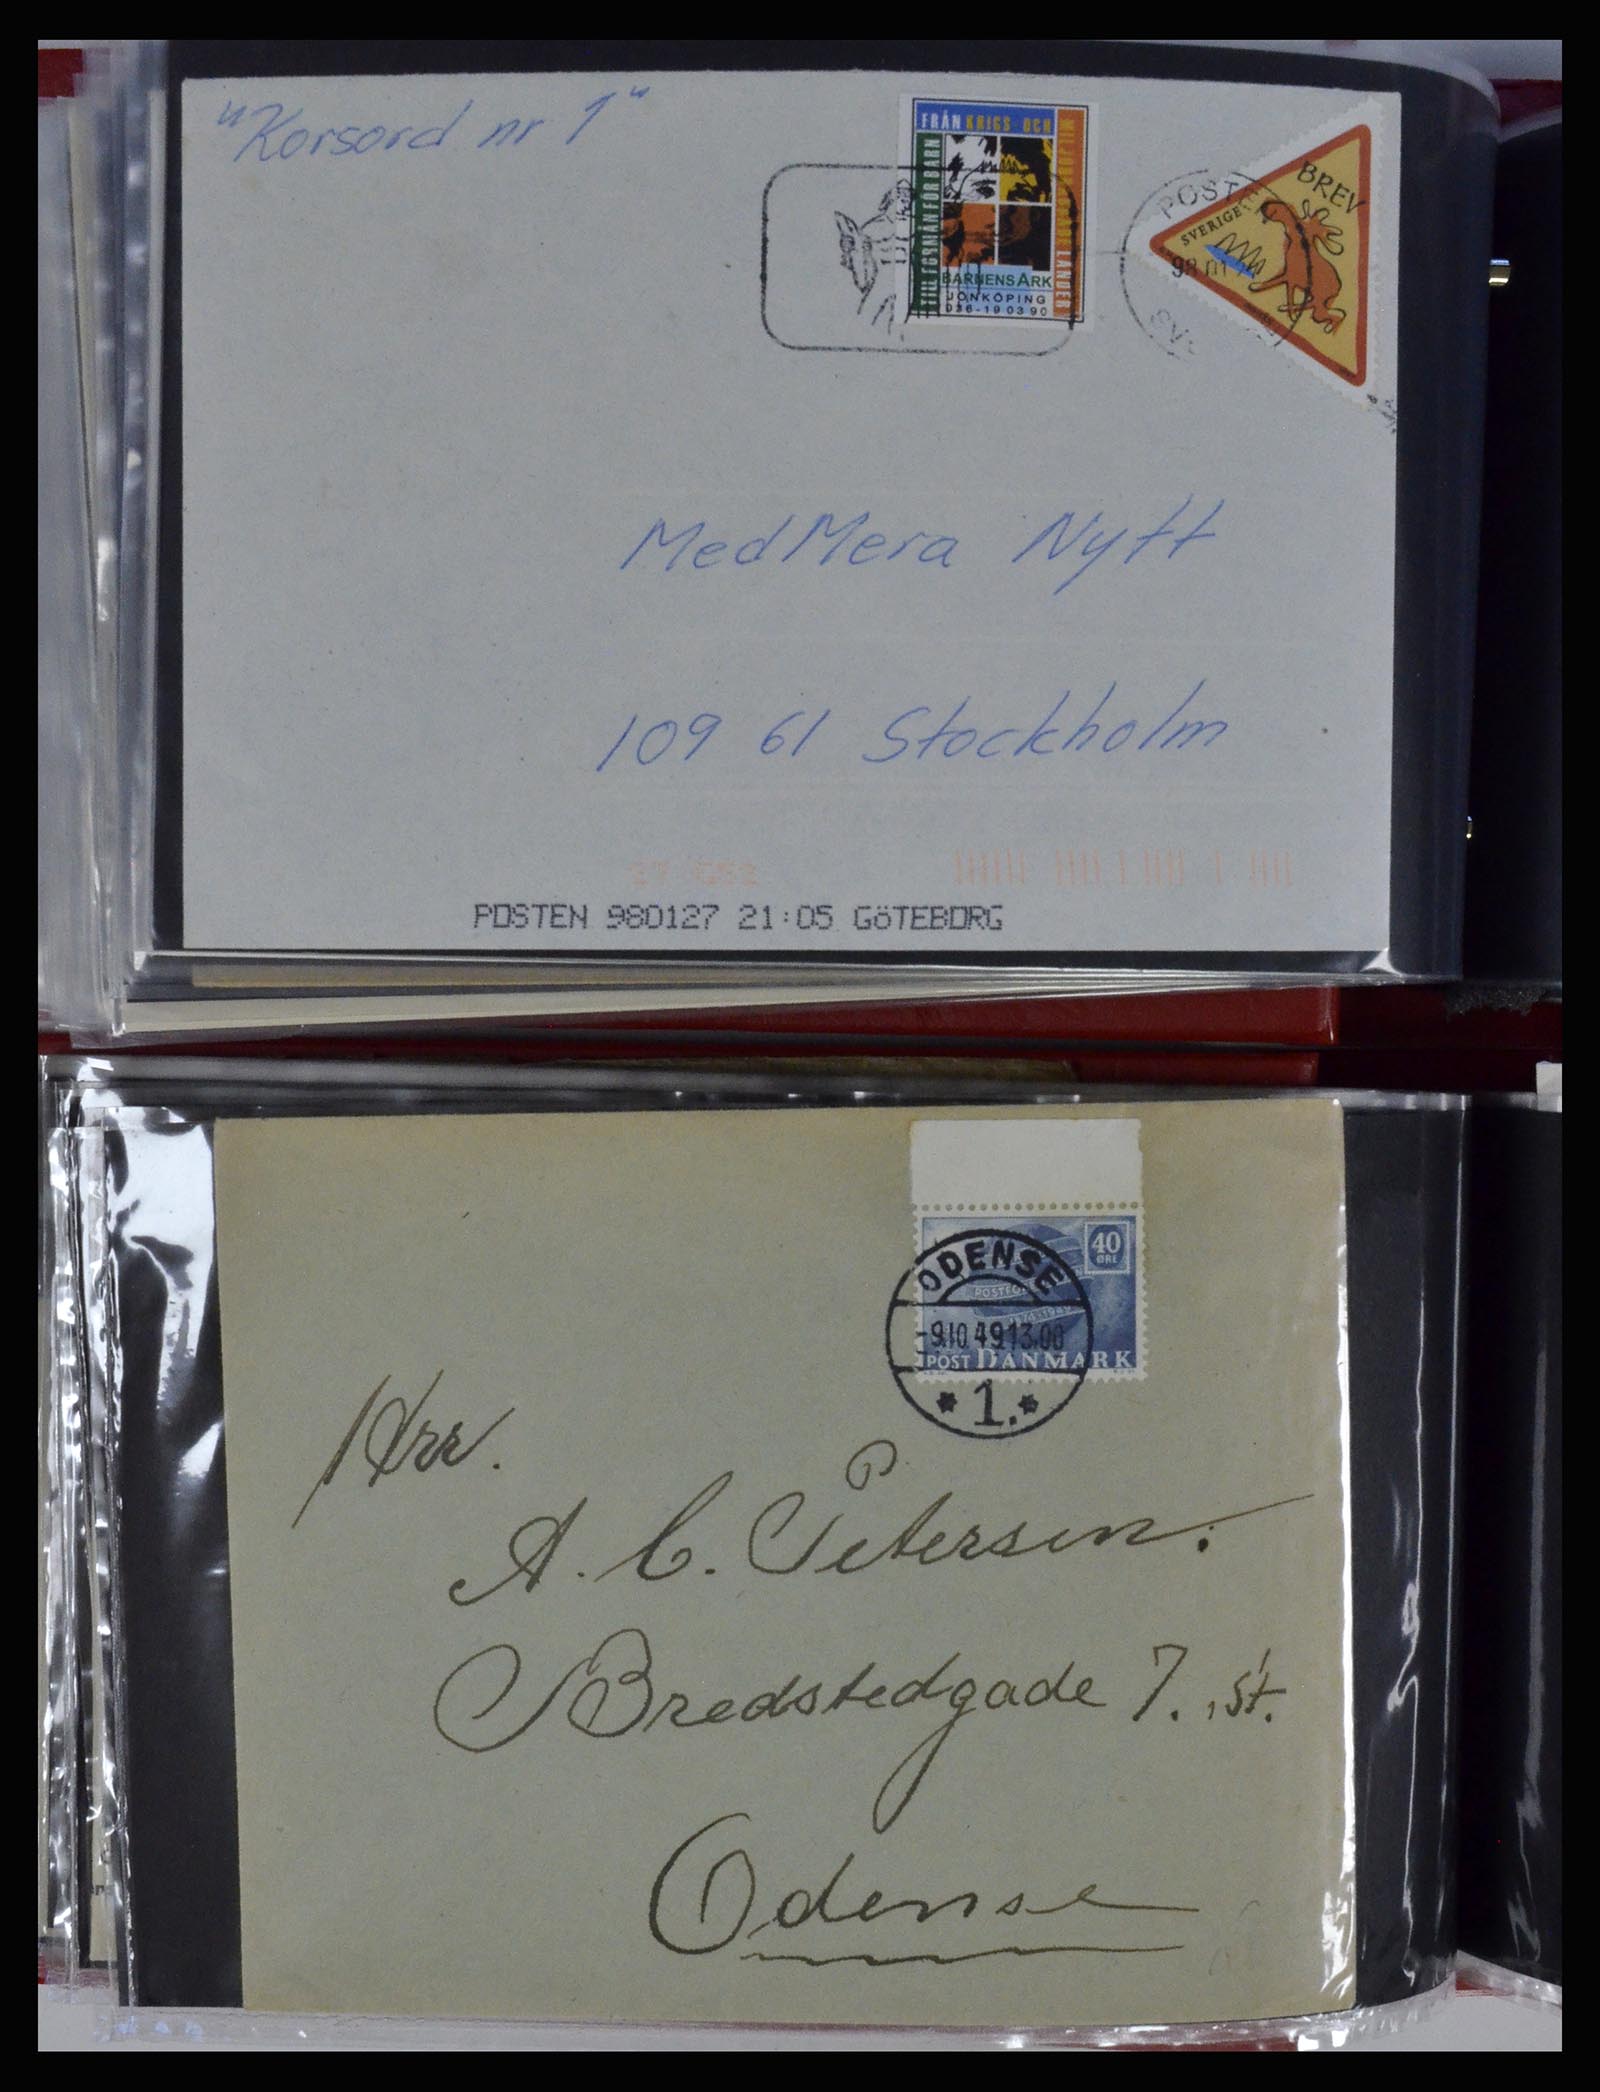 "Korsord nr 1"
FRÅN KRIGS- OCH
MILJÖDRABBADE LÄNDER
TILL FÖRMÅN FÖR BARN
BARNENSARK
JÖNKÖPING
036-19 03 90
POSTEN
98 01
BREV
SVERIGE
MedMera Nytt
109 61 Stockholm
POSTEN 980127 21:05 GÖTEBORG
40
ØRE
ODENSE
-9.10.49.13.00
POST DANMARK
* 1. *
Hrr.
A. C. Petersen.
Bredstedgade 7. St.
Odense